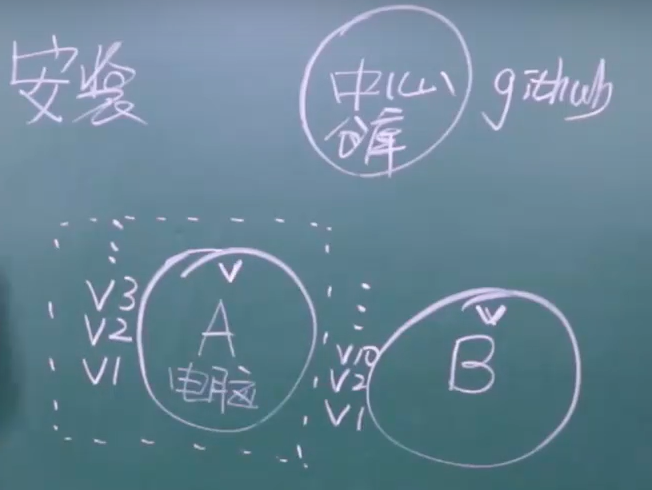 安装
中心
仓库
github
V3
V2
V1
V
A
电脑
V10
V2
V1
V
B